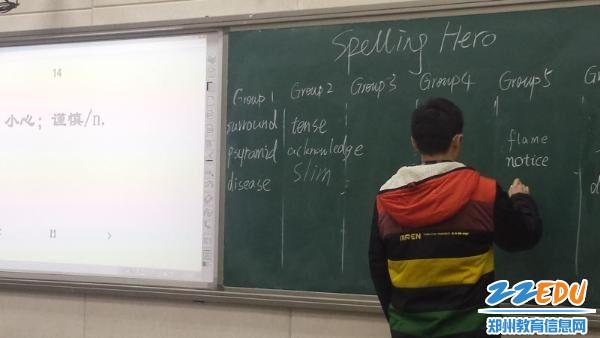 14
小心；谨慎/n.
Spelling Hero
Group 1 Group 2 Group 3 Group 4 Group 5
surround tense
psyramid acknowledge
disease Slim
flame
notice
22EDU
郑州教育信息网